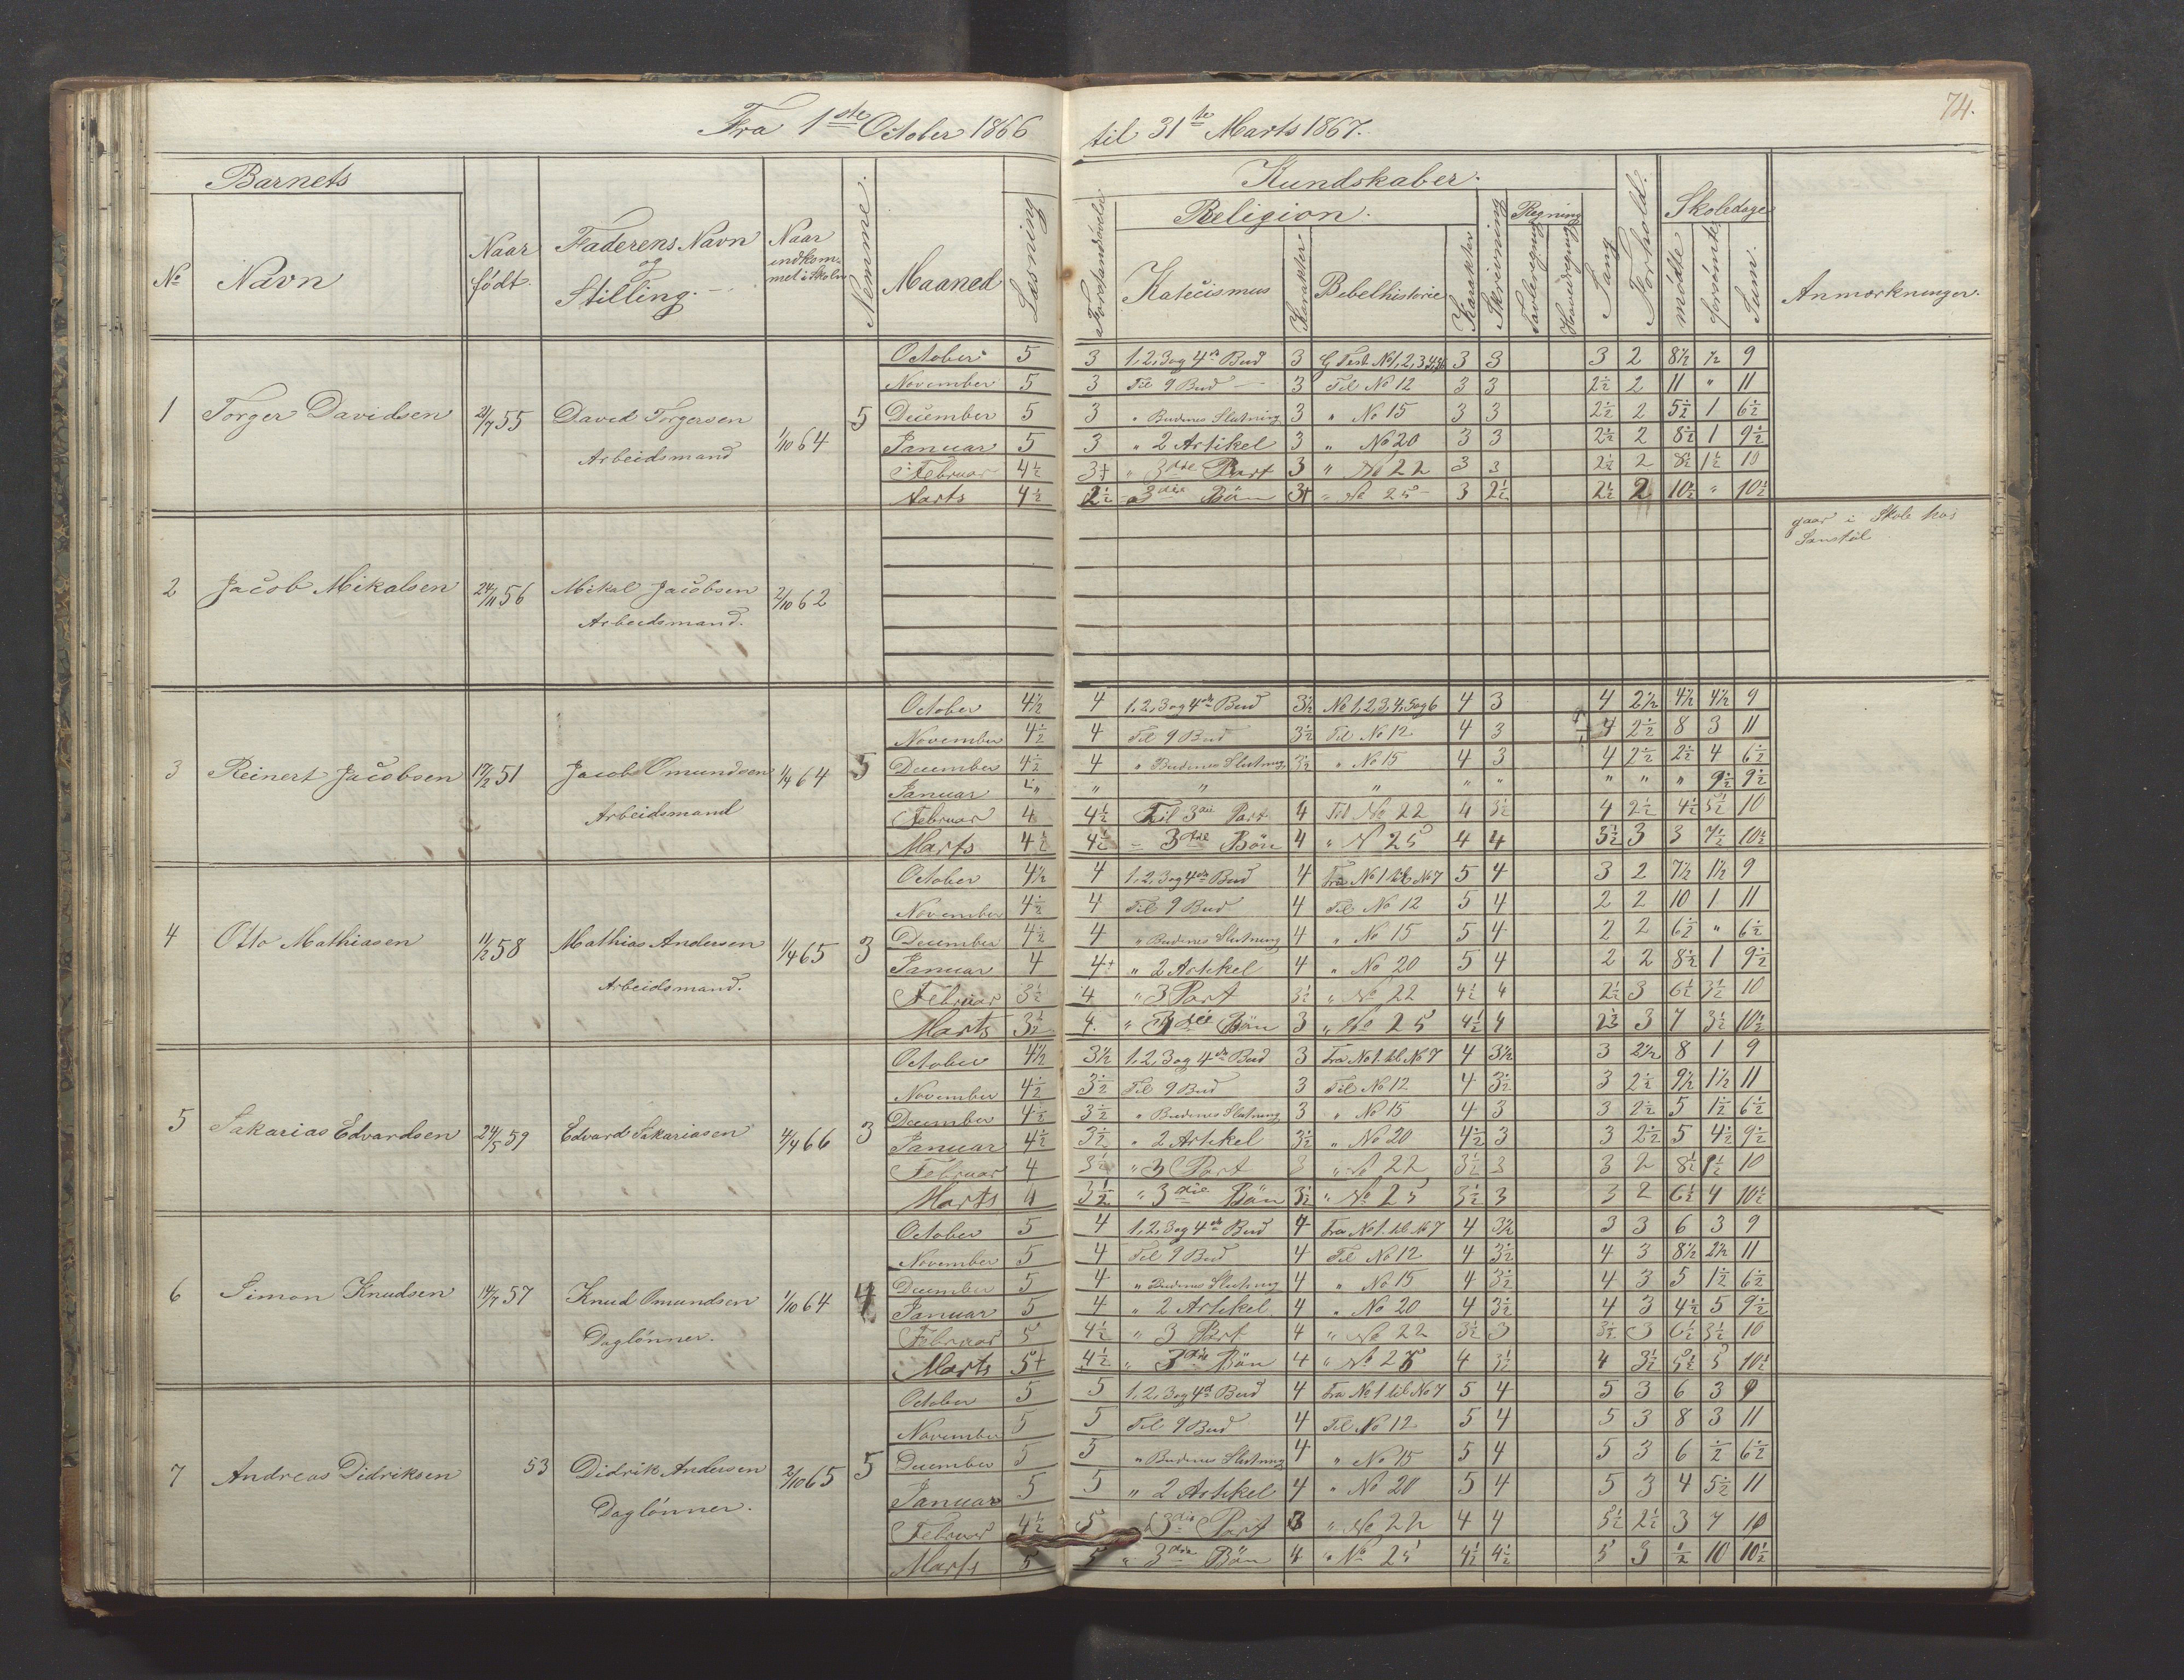 74.
Fra 1ste October 1866 til 31te Marts 1867.
Barnets
Kundskaber.
Religion.
Regning
Skoledage
No Navn Naar født. Faderens Navn og Stilling. Naar indkommet i Skolen Nemme. Maaned Læsning Forstandsøvelse Katecismus Karakter Bibelhistorie Karakter Skrivning Tavleregning Hovedregning Sang Forhold. mødte forsømte Sum. Anmærkninger.
1 Torger Davidsen 21/7 55 David Torgersen Arbeidsmand 1/10 64 5
October 5 3 1, 2, 3 og 4de Bud 3 G Test. No 1, 2, 3 3 3 3 2 8½ ½ 9
November 5 3 Til 9 Bud 3 Til No 12 3 3 2½ 2 11 " 11
December 5 3 " Budenes Slutning 3 " No 15 3 3 2½ 2 5½ 1 6½
Januar 5 3 " 2 Artikel 3 " No 20 3 3 2½ 2 8½ 1 9½
Februar 4½ 3+ " 3die Part 3 " No 22 3 3 2½ 2 8½ 1½ 10
Marts 4½ 2½ " 3die Bön 3+ " No 25 3 2½ 2½ 2 10½ " 10½
2 Jacob Mikalsen 24/11 56 Mikal Jacobsen Arbeidsmand. 2/10 62
gaar i Skole hos
3 Reinert Jacobsen 17/2 51 Jacob Omundsen Arbeidsmand 1/4 64 5
October 4½ 4 1, 2, 3 og 4de Bud 3½ No 1, 2, 3, 4, 5 og 6 4 3 4 2½ 4½ 4½ 9
November 4½ 4 Til 9 Bud 3½ Til No 12 4 3 4 2½ 8 3 11
December 4½ 4 " Budenes Slutning 3½ " No 15 4 3 4 2½ 2½ 4 6½
Januar " " " " " " " " " 9½ 9½
Februar 4 4½ Til 3die Part 4 Til No 22 4 3½ 4 2½ 4½ 5½ 10
Marts 4½ 4½ " 3die Bön 4 " N 25 4 4 3½ 3 3 7½ 10½
4 Otto Mathiasen 11/2 58 Mathias Andersen Arbeidsmand. 1/4 65 3
October 4½ 4 1, 2, 3 og 4de Bud 4 Fra No 1 til No 7 5 4 3 2 7½ 1½ 9
November 4½ 4 Til 9 Bud 4 Til No 12 5 4 2 2 10 1 11
December 4½ 4 " Budenes Slutning 4 " No 15 5 4 2 2 6½ " 6½
Januar 4 4+ " 2 Artikel 4 " No 20 5 4 2 2 8½ 1 9½
Februar 3½ 4 " 3 Part 3½ " No 22 4½ 4 2½ 3 6½ 3½ 10
Marts 3½ 4. " 3die Bön 3 " No 25 4½ 4 2½ 3 7 3½ 10½
5 Sakarias Edvardsen 24/5 59 Edvard Sakariasen 4/4 66 3
October 4½ 3½ 1, 2, 3 og 4de Bud 3 Fra No 1. til No 7 4 3½ 3 2½ 8 1 9
November 4½ 3½ Til 9 Bud 3 Til No 12 4 3½ 3 2½ 9½ 1½ 11
December 4½ 3½ " Budenes Slutning 3 " No 15 4 3 3 2½ 5 1½ 6½
Januar 4½ 3½ " 2 Artikel 3½ " No 20 4½ 3 3 2½ 5 4½ 9½
Februar 4 3½ " 3 Part 3 " No 22 3½ 3 3 2 8½ 1½ 10
Marts 4 3½ " 3die Bön 3½ " No 25 3½ 3 3 2 6½ 4 10½
6 Simon Knudsen 14/7 57 Knud Omundsen Daglønner. 1/10 64 4
October 5 4 1, 2, 3 og 4de Bud 4 Fra No 1. til No 7 4 3½ 3 3 6 3 9
November 5 4 Til 9 Bud 4 Til No 12 4 3½ 4 3 8½ 2½ 11
December 5 4 " Budenes Slutning 4 " No 15 4 3½ 4 3 5 1½ 6½
Januar 5 4 " 2 Artikel 4 " No 20 4 3½ 4 3 4½ 5 9½
Februar 5 4½ " 3 Part 4 " No 22 3½ 3 3½ 3 6½ 3½ 10
Marts 5+ 4½ " 3die Bön 4 " No 25 4 3½ 4 3½ 5½ 5 10½
7 Andreas Didriksen 53 Didrik Andersen Daglønner. 2/10 65 5
October 5 5 1, 2, 3 og 4d Bud 4 Fra No 1 til No 7 5 4 5 3 6 3 9
November 5 5 Til 9 Bud 4 Til No 12 5 4 5 3 8 3 11
December 5 5 " Budenes Slutning 4 " No 15 5 4 5 3 6 ½ 6½
Januar 5 5 " 2 Artikel 4 " No 20 5 4 5 3 4 5½ 11
Februar 4½ 5 3die Part 3 " No 22 4 4 5½ 2½ 3 7 10
Marts 5 5 " 3die Bön 4 " No 25 4½ 4½ 5 3 ½ 10 10½